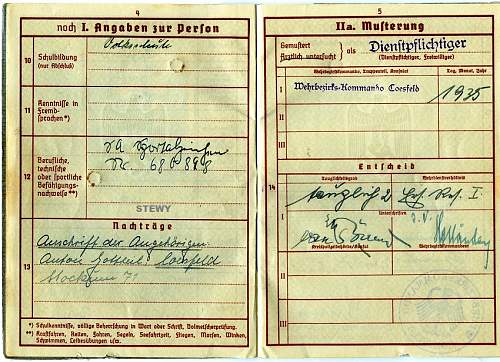 4
noch I. Angaben zur Person
10 Schulbildung
(nur Abschluß)
Volksschule
11 Kenntnisse in
Fremd-
sprachen *)
12 Berufliche,
technische
oder sportliche
Befähigungs-
nachweise **)
SA Sportabzeichen
Nr.
STEWY
Nachträge
13 Anschrift der Angehörigen
Anton
Coesfeld
*) Schulkenntnisse, völlige Beherrschung in Wort oder Schrift, Dolmetscherprüfung.
**) Kraftfahren, Reiten, Fahren, Segeln, Seefahrtzeit, Fliegen, Morsen, Winken,
Schwimmen, Leibesübungen usw.
5
IIa. Musterung
Gemustert
Ärztlich untersucht } als Dienstpflichtiger
(Dienstpflichtiger, Freiwilliger)
Wehrbezirkskommando, Truppenteil, Konsulat
Tag, Monat, Jahr
I Wehrbezirks-Kommando Coesfeld
1935
II
III
Entscheid
Tauglichkeitsgrad
Wehrdienstverhältnis
14
tauglich 2 Ers. Res. I
I
Unterschriften
Kreispolizeibehörde/Konsul
Wehrbezirkskommando
II
III